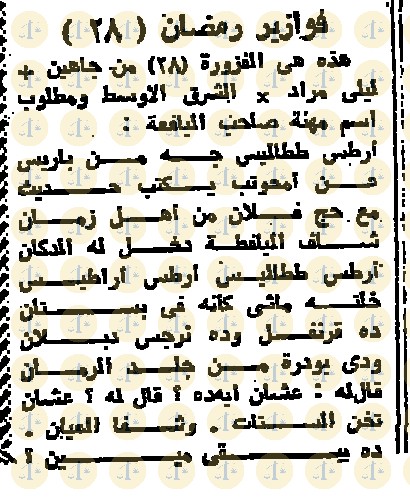 فوازير رمضان ( ٢٨ )
هذه هى الفزورة (٢٨) من جاهين +
ليلى مراد × الشرق الاوسط ومطلوب
اسم مهنة صاحب اليافطة :
ارطس ططاليس جه من باريس
عن امحوتب يكتب حديث
مع حج فلان من اهل زمان
شاف اليافطة دخل له الدكان
ارطس ططاليس ارطس اراطيس
خلته ماشى كانه فى بستان
ده قرنفل وده نرجس دبلان
ودى بودرة من جلد الرمان
قالله : عشان ايه ده ؟ قال له ؟ عشان
تخن الستات . وشفا العيان .
ده يبقى مين ؟